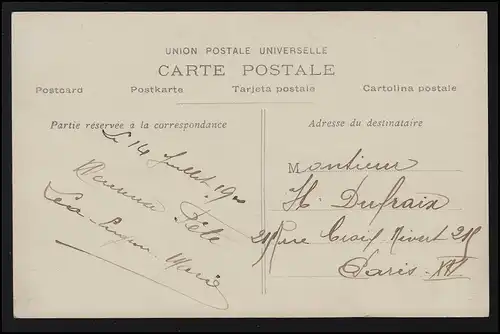 UNION POSTALE UNIVERSELLE
CARTE POSTALE
Postcard Postkarte Tarjeta postale Cartolina postale
Partie réservée à la correspondance
Le 14 Juillet
Heureuse Fête
Marie
Adresse du destinataire
Monsieur
H. Dufraix
Rue Croix Nivert
Paris. XV